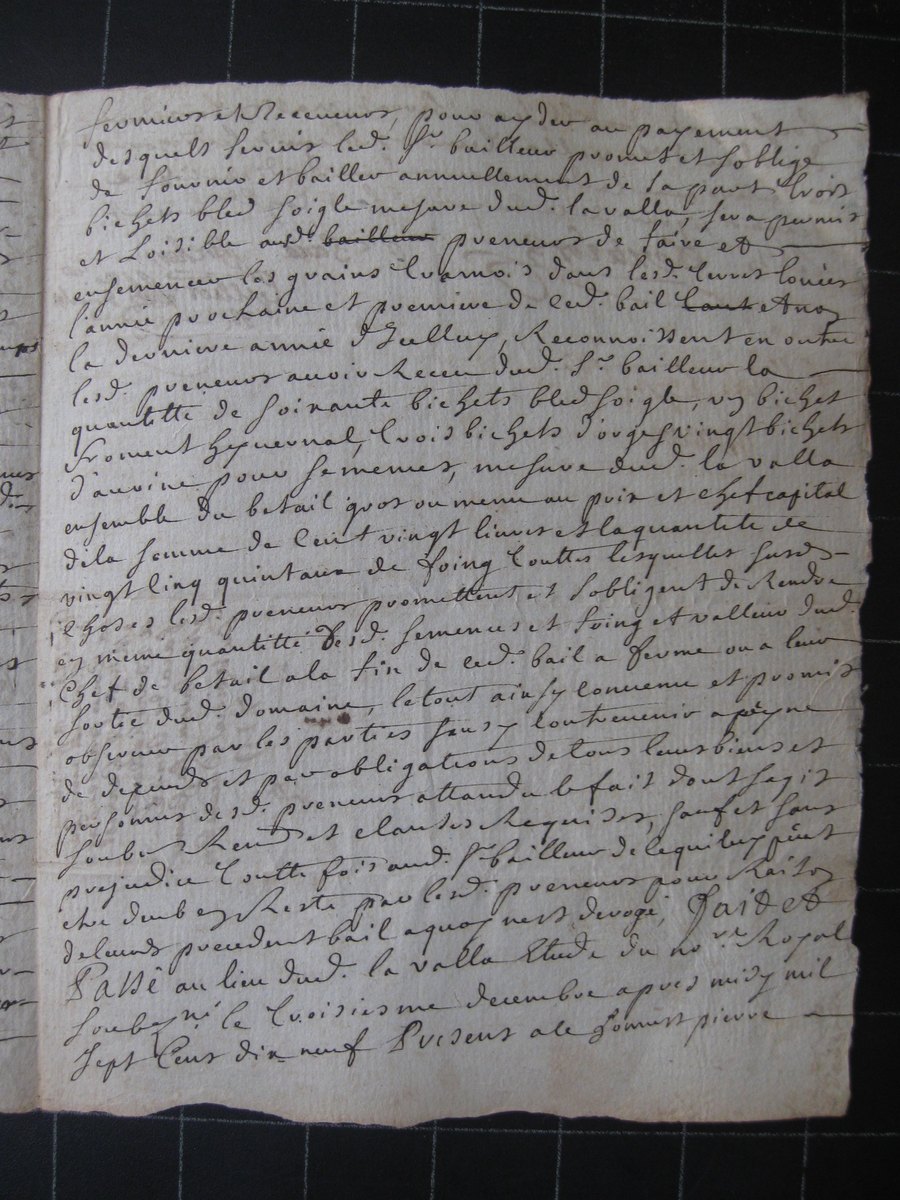 fermiers et Receveurs, pour ayder au payement
desquels servis led. Sr. bailleur promet et soblige
de fournir et bailler annuellement de sa part trois
bichets bled soigle mesure dud. lavalla, sera permis
et Loisible ausd. bailleur preneurs de faire et
ensemencer les grains tramois dans lesd. terres
l'année prochaine et premiere de ced. bail tant et non
la derniere année d'Icelluy, Reconnoissent en outre
lesd. preneurs avoir Receu dud. Sr. bailleur la
quantitté de soixante bichets bled soigle, un bichet
froment hyvernal, trois bichets d'orges vingt bichets
d'avoine pour semences, mesure dud. la valla
ensemble du betail gros ou menu au prix et chef capital
de la somme de Cent vingt livres et la quantité de
vingt Cinq quintaux de foing touttes lesquelles susd
choses lesd. preneurs promettent et sobligent de Rendre
en meme quantitté desd. semences et foing et valleur dud.
Chef de betail a la fin de ced. bail a ferme ou a leur
sortie dud. domaine, le tout ainsy convenu et promis
observer par les parties sans y contrevenir a peyne
de depends et par obligations de tous leurs biens et
personnes desd. preneurs attandu le fait dont sagit
soubm. Renon. et clauses Requises, sauf et sans
prejudice touttefois aud. Sr. bailleur de ce qui luy peut
etre deub en Reste par lesd. preneurs pour Raison
de leurd precedent bail a quoy nest derogé, fait et
Passé au lieu dud. la valla Etude du nore. Royal
soubsné le troisiesme decembre apres midy mil
sept Cent dix neuf Presents pierre